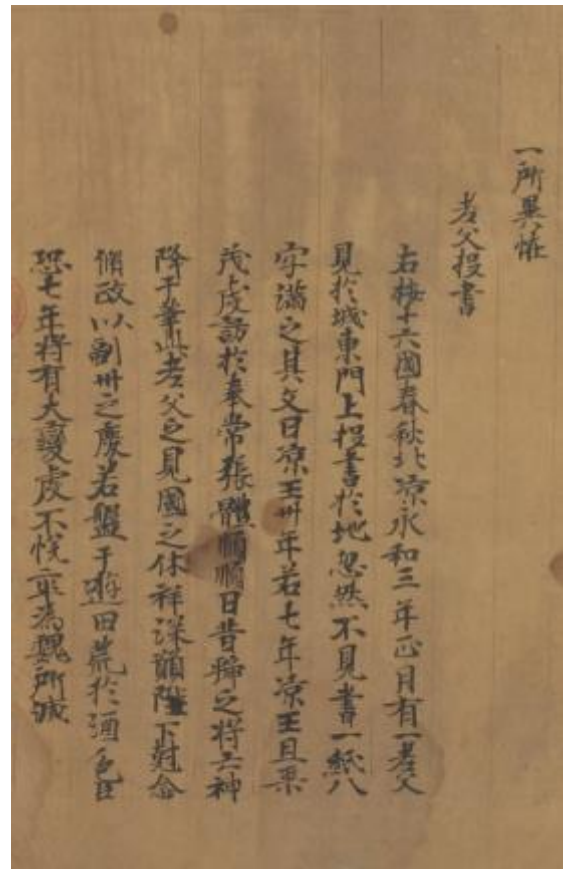 一所異恠
老父投書
右按十六國春秋北凉永和三年正月有一老父
見於城東門上投書於地忽然不見書一紙八
字滿之其文曰凉王卅年若七年凉王且渠
茂虔訪於奉常張體順順曰昔虢之將亡神
降于莘此老父之見國之休祥深願陛下尅念
脩政以副卅之慶若盤于遊田荒於酒色臣
恐七年將有大變虔不悅卒為魏所滅